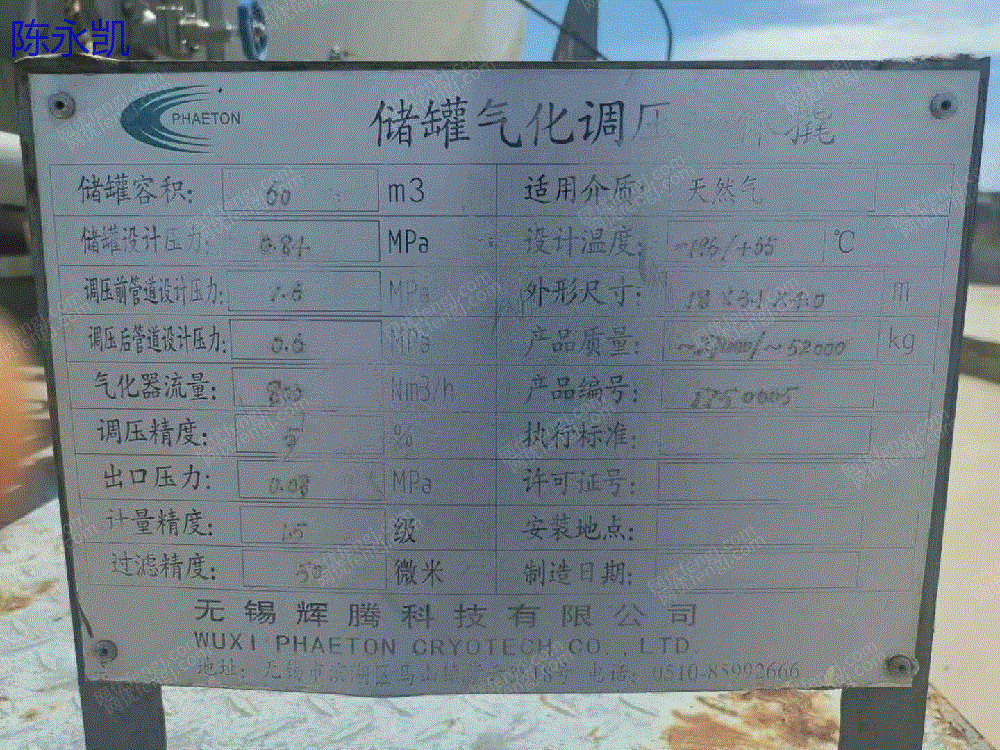 陈永凯
PHAETON
储罐气化调压 撬
储罐容积: 60 m3 适用介质: 天然气
储罐设计压力: 0.84 MPa 设计温度: -196/+55 ℃
调压前管道设计压力: 1.6 MPa 外形尺寸: m
调压后管道设计压力: 0.6 MPa 产品质量: kg
气化器流量: 800 Nm3/h 产品编号:
调压精度: 5 % 执行标准:
出口压力: 0.08 MPa 许可证号:
计量精度: 1.5 级 安装地点:
过滤精度: 50 微米 制造日期:
无锡辉腾科技有限公司
WUXI PHAETON CRYOTECH CO., LTD.
地址: 无锡市滨湖区马山 18号 电话: 0510-85992666